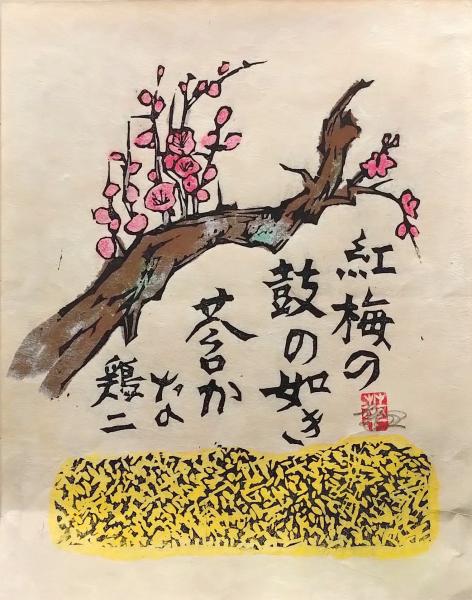 紅梅の
鼓の如き
莟か
な
鶏二